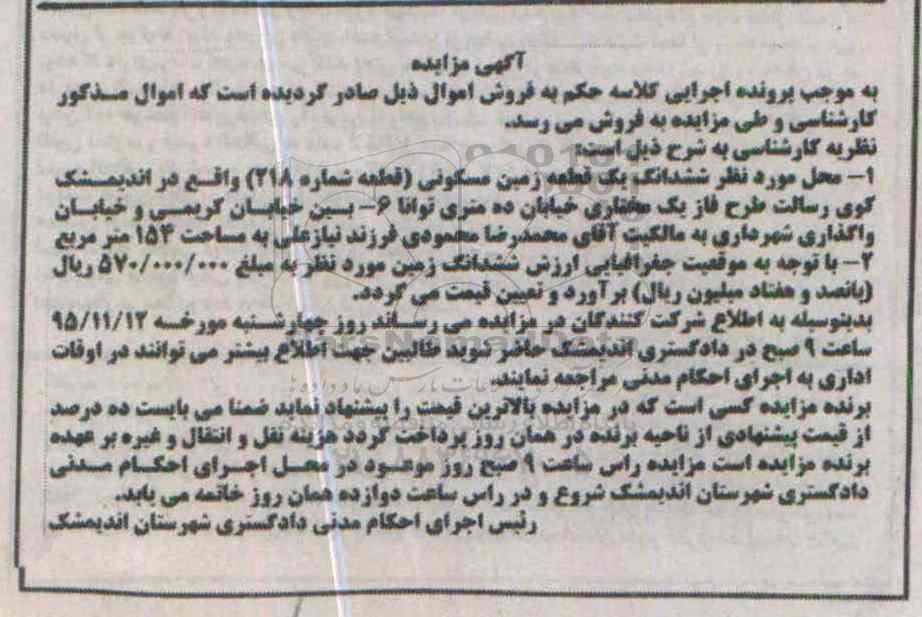 آگهی مزایده
به موجب پرونده اجرایی کلاسه حکم به فروش اموال ذیل صادر گردیده است که اموال مذکور
کارشناسی و طی مزایده به فروش می رسد.
نظریه کارشناسی به شرح ذیل است:
۱- محل مورد نظر ششدانگ یک قطعه زمین مسکونی (قطعه شماره ۲۱۸) واقع در اندیمشک
کوی رسالت طرح فاز یک مختاری خیابان ده متری توانا ۶- بین خیابان کریمی و خیابان
واگذاری شهرداری به مالکیت آقای محمدرضا محمودی فرزند نیازعلی به مساحت ۱۵۴ متر مربع
۲- با توجه به موقعیت جغرافیایی ارزش ششدانگ زمین مورد نظر به مبلغ ۵۷۰/۰۰۰/۰۰۰ ریال
(پانصد و هفتاد میلیون ریال) برآورد و تعیین قیمت می گردد.
بدینوسیله به اطلاع شرکت کنندگان در مزایده می رساند روز چهارشنبه مورخه ۹۵/۱۱/۱۲
ساعت ۹ صبح در دادگستری اندیمشک حاضر شوید طالبین جهت اطلاع بیشتر می توانند در اوقات
اداری به اجرای احکام مدنی مراجعه نمایند.
برنده مزایده کسی است که در مزایده بالاترین قیمت را پیشنهاد نماید ضمنا می بایست ده درصد
از قیمت پیشنهادی از ناحیه برنده در همان روز پرداخت گردد هزینه نقل و انتقال و غیره بر عهده
برنده مزایده است مزایده راس ساعت ۹ صبح روز موعود در محل اجرای احکام مدنی
دادگستری شهرستان اندیمشک شروع و در راس ساعت دوازده همان روز خاتمه می یابد.
رئیس اجرای احکام مدنی دادگستری شهرستان اندیمشک